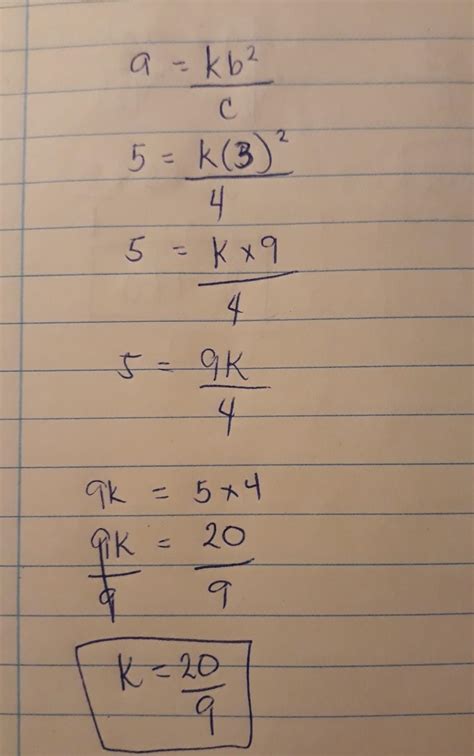 a = kb²/c
5 = k(3)²/4
5 = k×9/4
5 = 9k/4
9k = 5×4
9k/9 = 20/9
k = 20/9